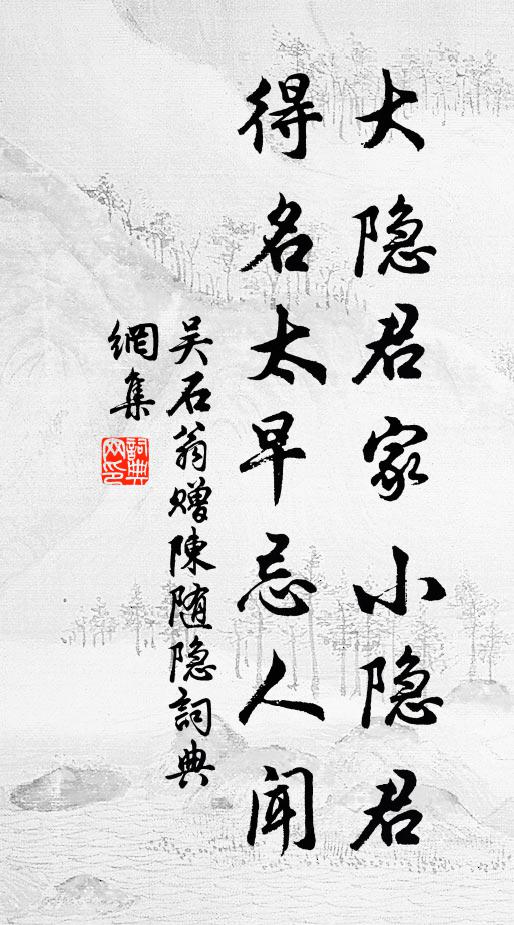 大隐君家小隐君
得名太早忌人闻
吴石翁赠陳随隐詞典
網集
詞典网印